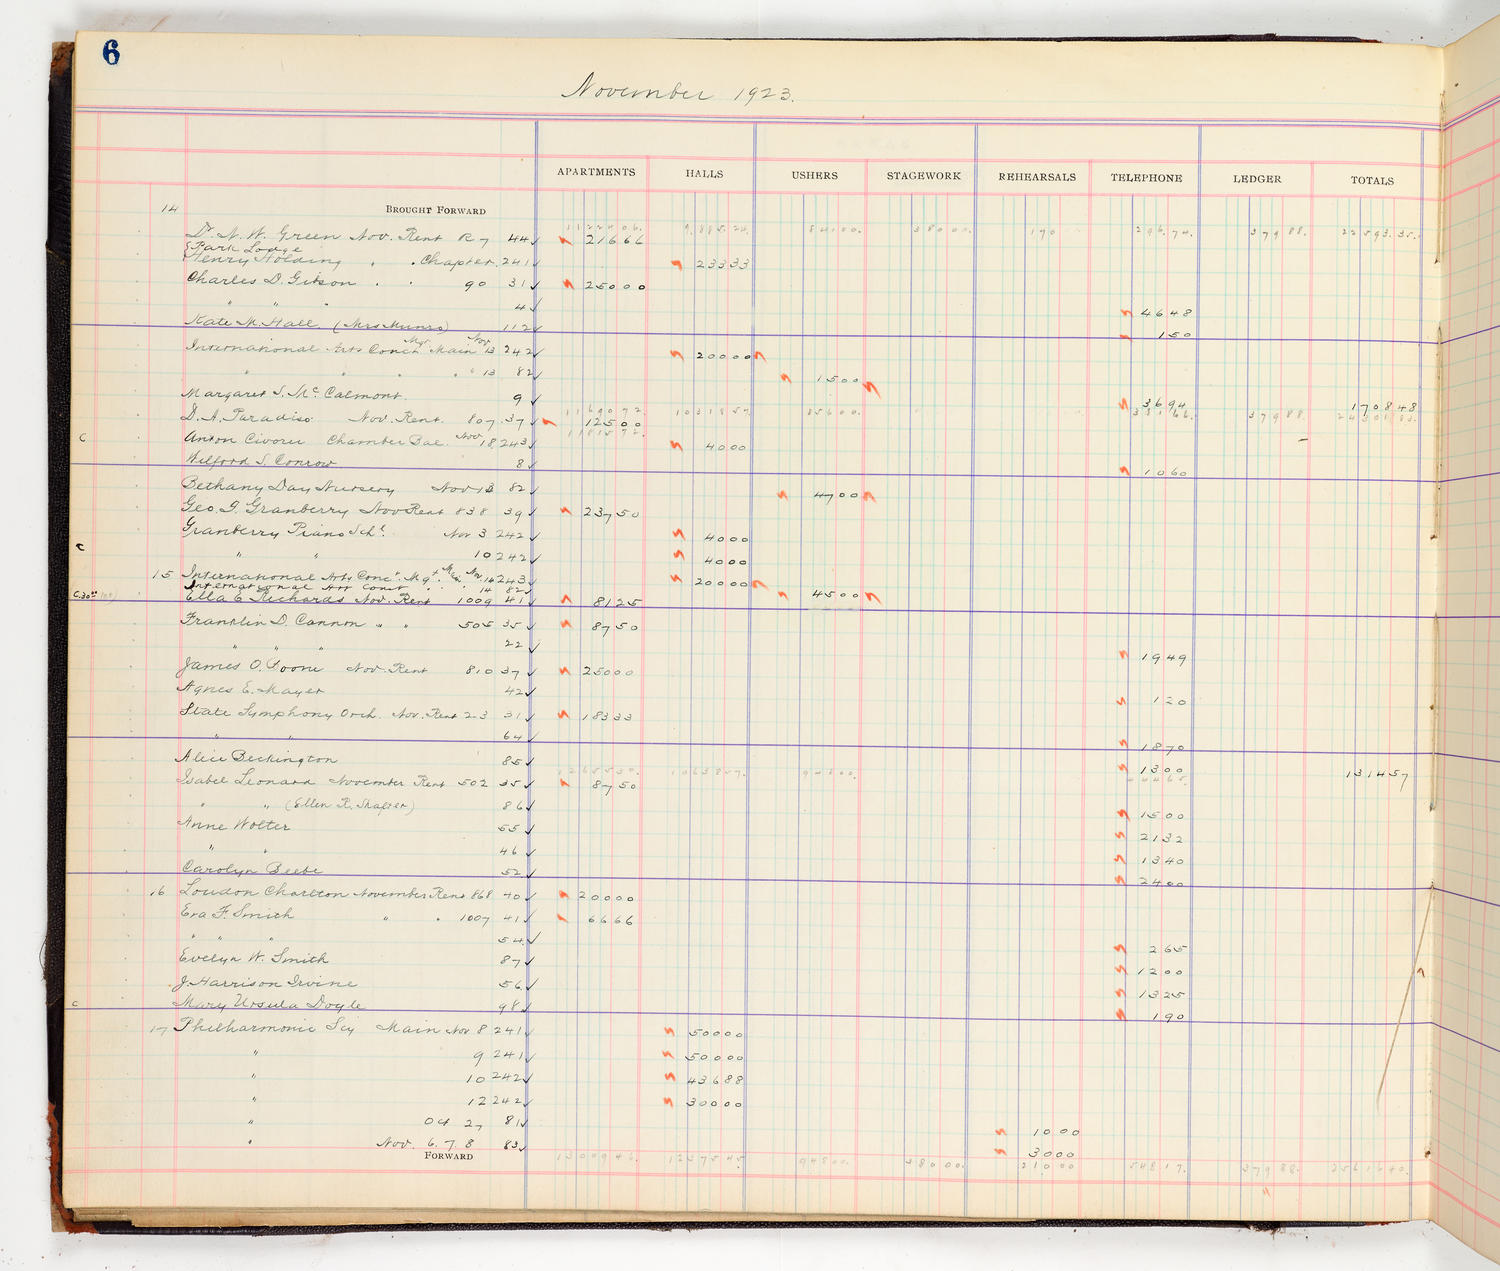 6
November 1923.
APARTMENTS HALLS USHERS STAGEWORK REHEARSALS TELEPHONE LEDGER TOTALS
14 BROUGHT FORWARD
Dr. N. W. Green Nov. Rent R7 44 ✓ 21666
Park Lodge
Henry Holding " " Chapter. 241 ✓ 23333
Charles D. Gibson " " 90 31 ✓ 25000
" " " 4 ✓ 4648
Kate M. Hall (Mrs Munro) 112 ✓ 150
International Arts Conct. Mgt. Main Nov. 13 242 ✓ 20000
" " " " " 13 82 ✓ 1500
Margaret S. McCalmont. 9 ✓ 3694 170848
D. A. Paradiso Nov. Rent. 807. 37 ✓ 12500
C Chamber Nov 18 243 ✓ 4000
Wilford S. Conrow 8 ✓ 1060
Bethany Day Nursery Nov 13 82 ✓ 4700
Geo. G. Granberry Nov Rent 838 39 ✓ 23750
Granberry Piano Schl. Nov 3 242 ✓ 4000
C " " 10 242 ✓ 4000
15 International Arts Conct. Mgt. Main Nov 14 243 ✓ 20000
International Art Conct. " " 14 82 ✓ 4500
Ella E Richards Nov. Rent 1009 41 ✓ 8125
Franklin D. Cannon " " 505 35 ✓ 8750
" " " 22 ✓ 1949
James O. Nov. Rent 810 37 ✓ 25000
Agnes E. Mayer 42 ✓ 120
State Symphony Orch. Nov. Rent 23 31 ✓ 18333
" " 64 ✓ 1870
Alice Beckington 85 ✓ 1300 131457
Isabel Leonard November Rent 502 35 ✓ 8750
" " (Ellen R. Shafter) 86 ✓ 1500
Anne Wolter 55 ✓ 2132
" " 46 ✓ 1340
Carolyn Beebe 52 ✓ 2400
16 Loudon Charlton November Rent 868 40 ✓ 20000
Eva F. Smith " " 1007 41 ✓ 6666
" " " 54 ✓ 265
Evelyn W. Smith 87 ✓ 1200
J. Harrison Irvine 56 ✓ 1325
C Mary Ursula Doyle 98 ✓ 190
17 Philharmonic Scy Main Nov 8 241 ✓ 50000
" 9 241 ✓ 50000
" 10 242 ✓ 43688
" 12 242 ✓ 30000
" Oct 27 81 ✓ 1000
" Nov. 6. 7. 8 83 ✓ 3000
FORWARD 1300946. 94800. 38000. 21000 54817. 37988.